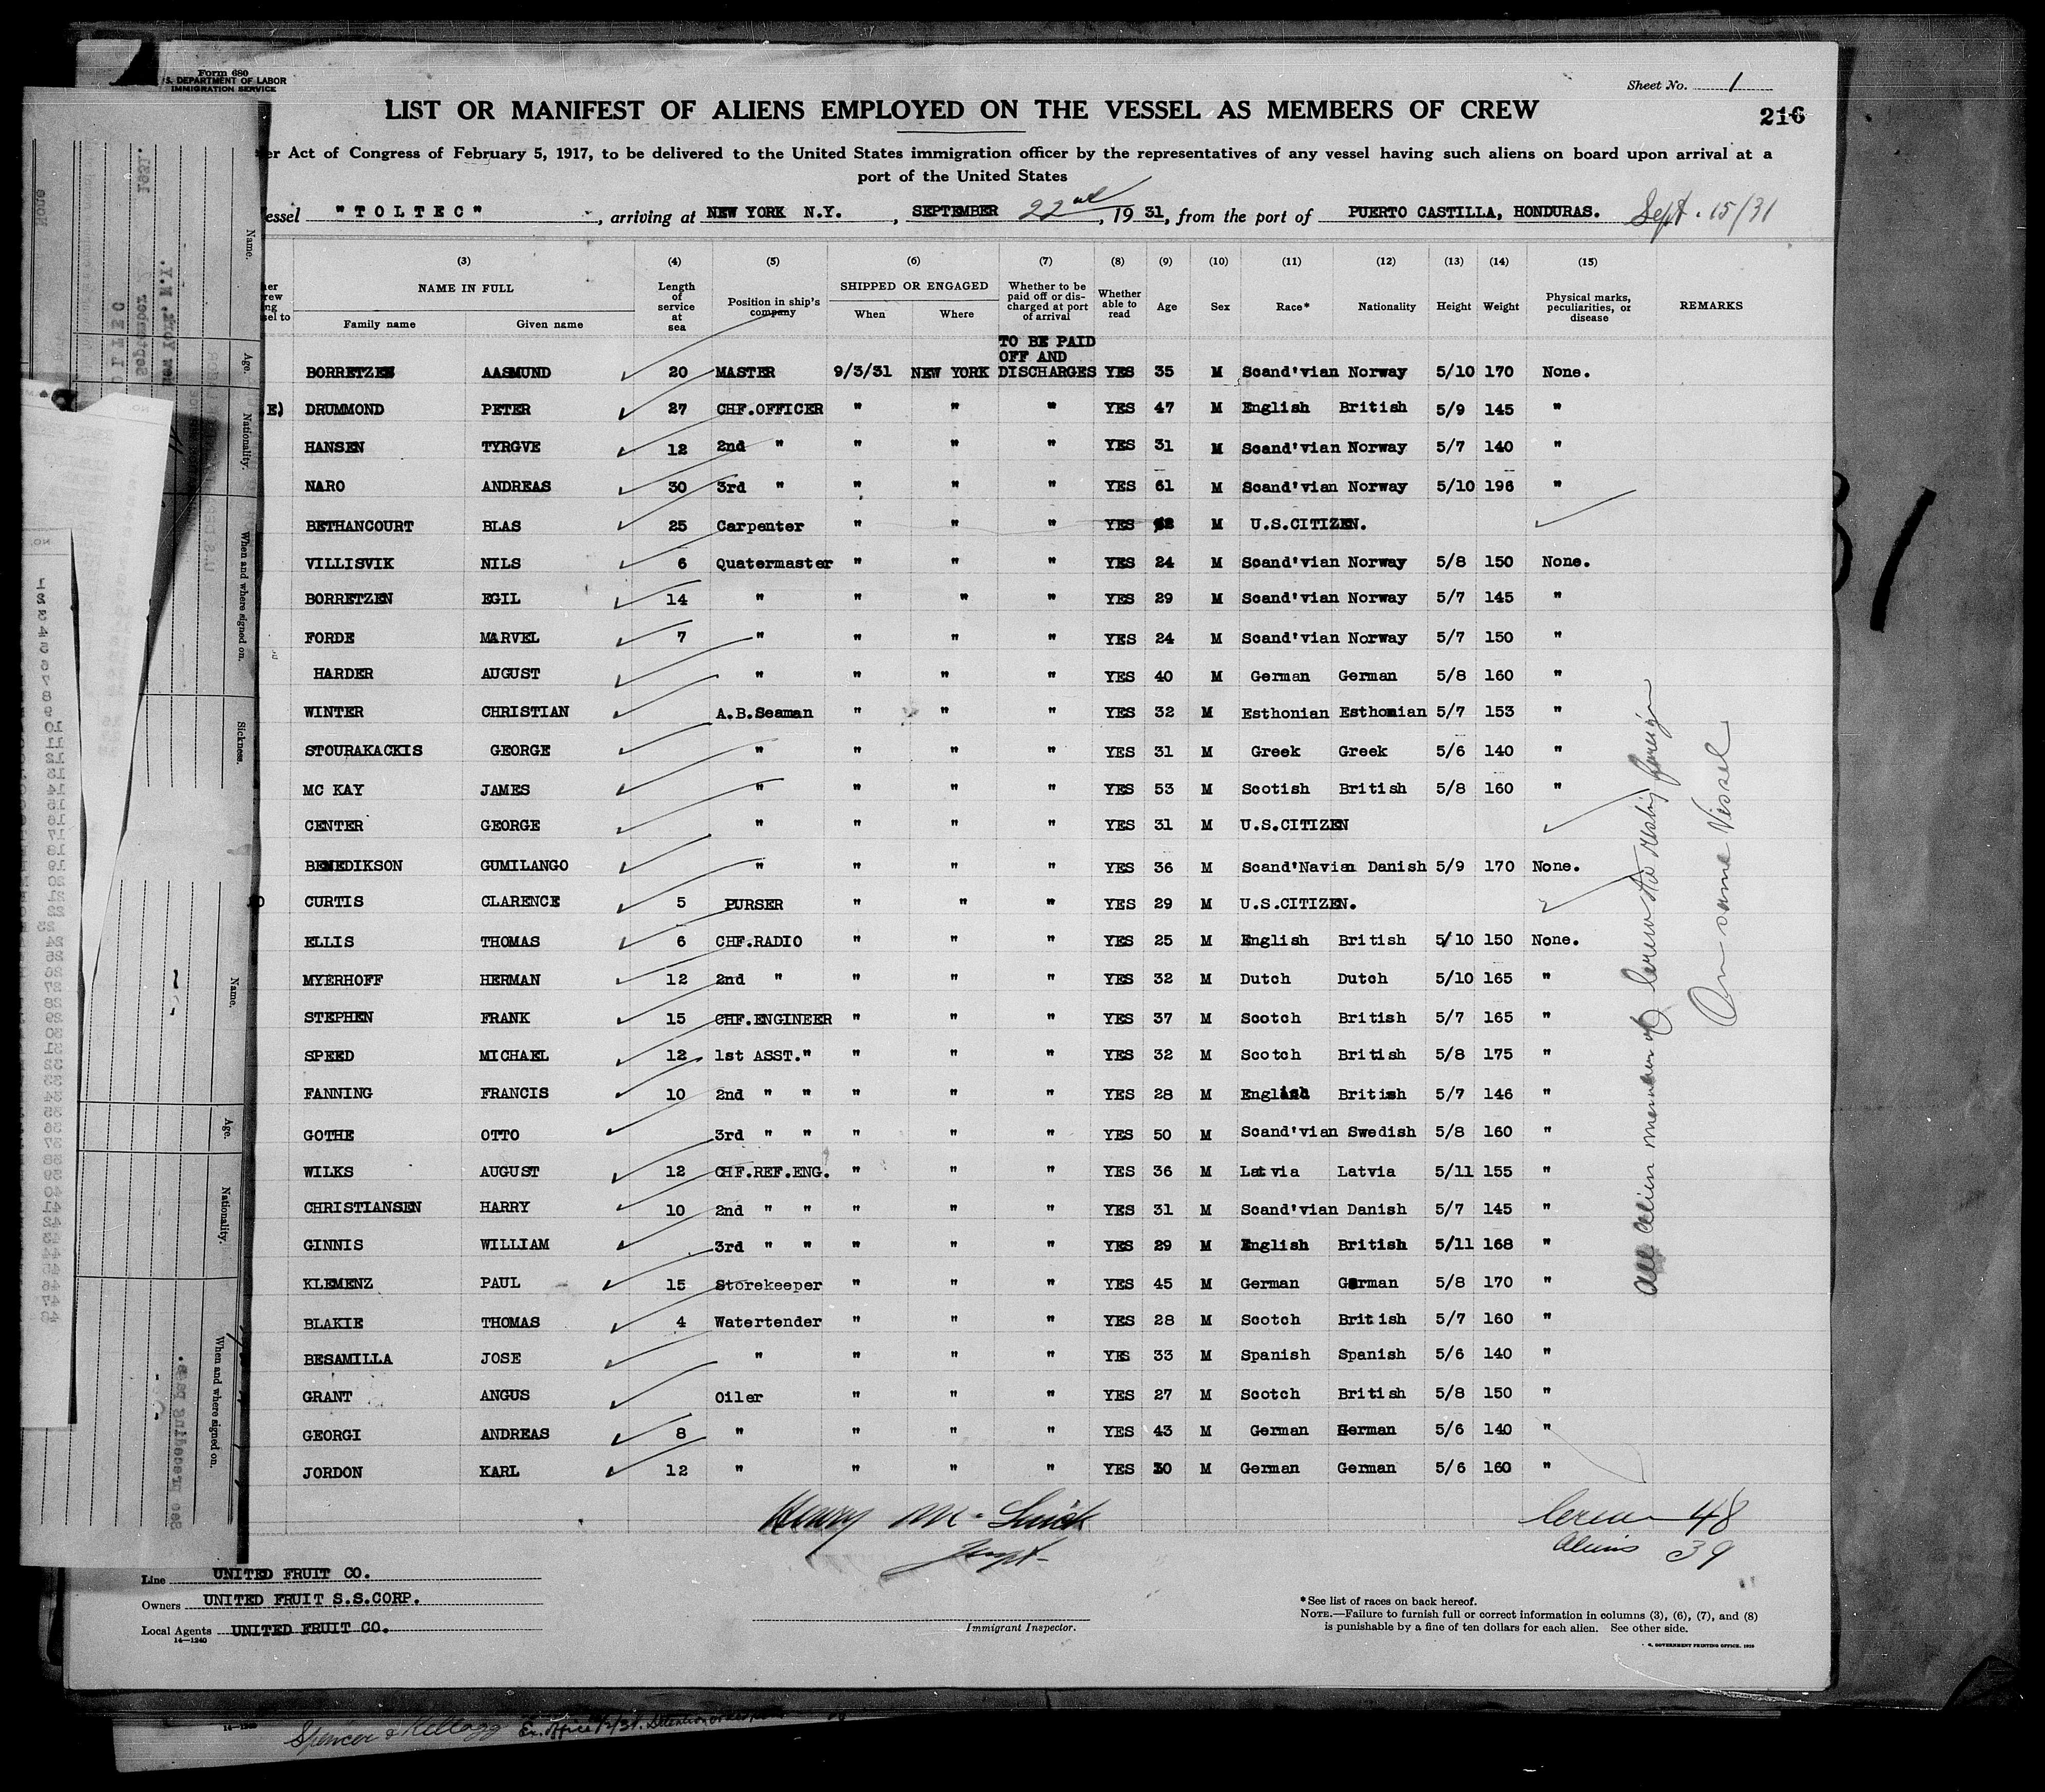 Form 680
S. DEPARTMENT OF LABOR
IMMIGRATION SERVICE
Sheet No. 1
LIST OR MANIFEST OF ALIENS EMPLOYED ON THE VESSEL AS MEMBERS OF CREW
216
er Act of Congress of February 5, 1917, to be delivered to the United States immigration officer by the representatives of any vessel having such aliens on board upon arrival at a
port of the United States
essel "TOLTEC", arriving at NEW YORK N.Y., SEPTEMBER 22nd, 1931, from the port of PUERTO CASTILLA, HONDURAS. Sept. 15/31
(3) (4) (5) (6) (7) (8) (9) (10) (11) (12) (13) (14) (15)
NAME IN FULL Length of service at sea Position in ship's company SHIPPED OR ENGAGED Whether to be paid off or discharged at port of arrival Whether able to read Age Sex Race* Nationality Height Weight Physical marks, peculiarities, or disease REMARKS
Family name Given name When Where
TO BE PAID
OFF AND
BORRETZEN AASMUND 20 MASTER 9/3/31 NEW YORK DISCHARGES YES 35 M Scand'vian Norway 5/10 170 None.
E) DRUMMOND PETER 27 CHF.OFFICER " " " YES 47 M English British 5/9 145 "
HANSEN TYRGVE 12 2nd " " " " YES 31 M Scand'vian Norway 5/7 140 "
NARO ANDREAS 30 3rd " " " " YES 61 M Scand'vian Norway 5/10 196 "
BETHANCOURT BLAS 25 Carpenter " " " YES M U.S.CITIZEN.
VILLISVIK NILS 6 Quatermaster " " " YES 24 M Scand'vian Norway 5/8 150 None.
BORRETZEN EGIL 14 " " " " YES 29 M Scand'vian Norway 5/7 145 "
FORDE MARVEL 7 " " " " YES 24 M Scand'vian Norway 5/7 150 "
HARDER AUGUST " " " " YES 40 M German German 5/8 160 "
WINTER CHRISTIAN A.B.Seaman " " " YES 32 M Esthonian Esthonian 5/7 153 "
STOURAKACKIS GEORGE " " " " YES 31 M Greek Greek 5/6 140 "
MC KAY JAMES " " " " YES 53 M Scotish British 5/8 160 "
CENTER GEORGE " " " " YES 31 M U.S.CITIZEN
BENEDIKSON GUMILANGO " " " " YES 36 M Scand'Navian Danish 5/9 170 None.
CURTIS CLARENCE 5 PURSER " " " YES 29 M U.S.CITIZEN.
ELLIS THOMAS 6 CHF.RADIO " " " YES 25 M English British 5/10 150 None.
MYERHOFF HERMAN 12 2nd " " " " YES 32 M Dutch Dutch 5/10 165 "
STEPHEN FRANK 15 CHF.ENGINEER " " " YES 37 M Scotch British 5/7 165 "
SPEED MICHAEL 12 1st ASST." " " " YES 32 M Scotch British 5/8 175 "
FANNING FRANCIS 10 2nd " " " " " YES 28 M English British 5/7 146 "
GOTHE OTTO 3rd " " " " " YES 50 M Scand'vian Swedish 5/8 160 "
WILKS AUGUST 12 CHF.REF.ENG. " " " YES 36 M Latvia Latvia 5/11 155 "
CHRISTIANSEN HARRY 10 2nd " " " " " YES 31 M Scand'vian Danish 5/7 145 "
GINNIS WILLIAM 3rd " " " " " YES 29 M English British 5/11 168 "
KLEMENZ PAUL 15 Storekeeper " " " YES 45 M German German 5/8 170 "
BLAKIE THOMAS 4 Watertender " " " YES 28 M Scotch British 5/7 160 "
BESAMILLA JOSE " " " " YES 33 M Spanish Spanish 5/6 140 "
GRANT ANGUS Oiler " " " YES 27 M Scotch British 5/8 150 "
GEORGI ANDREAS 8 " " " " YES 43 M German German 5/6 140 "
JORDON KARL 12 " " " " YES 30 M German German 5/6 160 "
All alien members of Crew to reship foreign
On same Vessel
Henry Mc
Crew 48
Aliens 39
Line UNITED FRUIT CO.
Owners UNITED FRUIT S.S.CORP.
Local Agents UNITED FRUIT CO.
14—1240
Immigrant Inspector.
*See list of races on back hereof.
NOTE.—Failure to furnish full or correct information in columns (3), (6), (7), and (8)
is punishable by a fine of ten dollars for each alien. See other side.
GOVERNMENT PRINTING OFFICE
Name.
Age.
Nationality.
When and where signed on.
Sickness.
Name.
Age.
Nationality.
When and where signed on.
See preceding page.
Spencer Kellogg